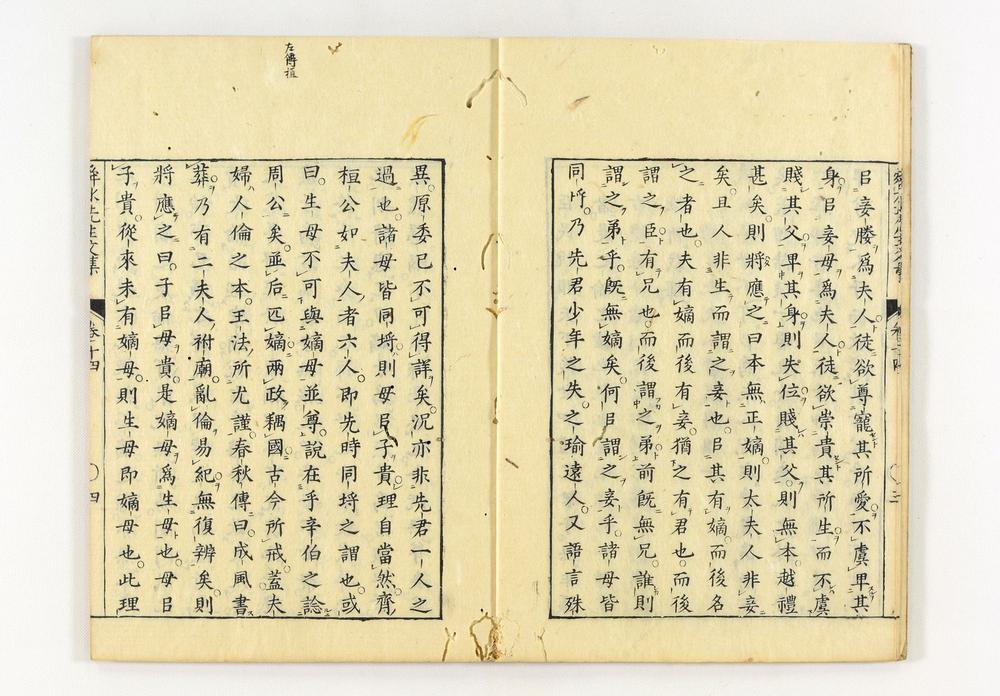 㠯妾媵爲夫人徒欲尊寵其所愛不虞卑其
身㠯妾母爲夫人徒欲崇貴其所生而不虞
賤其父卑其身則失位賤其父則無本越禮
甚矣則將應之曰本無正嫡則太夫人非妾
矣且人非生而謂之妾也㠯其有嫡而後名
之者也夫有嫡而後有妾猶之有君也而後
謂之臣有兄也而後謂之弟前旣無兄誰則
謂之弟乎旣無嫡矣何㠯謂之妾乎諸母皆
同時乃先君少年之失之瑜遠人又語言殊
左傳桓
異原委已不可得詳矣沉亦非先君一人之
過也諸母皆同埒則母㠯子貴理自當然齊
桓公如夫人者六人卽先時同埒之謂也或
曰生母不可與嫡母並尊說在乎辛伯之諗
周公矣並后匹嫡兩政耦國古今所戒蓋夫
婦人倫之本王法所尤謹春秋傳曰成風書
葬乃有二夫人祔廟亂倫易紀無復辨矣則
將應之曰子㠯母貴是嫡母爲生母也母㠯
子貴從來未有嫡母則生母卽嫡母也此理
舜水先生文集
卷十四
四